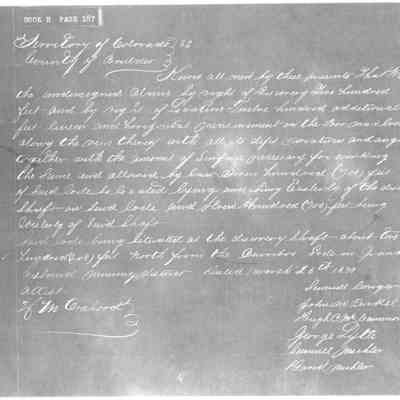 BOOK H PAGE 157
Territory of Colorado } SS
County of Boulder
Know all men by these presents That We
the undersigned claim by right of Discovery Two hundred
feet and by right of Location Twelve hundred additional
feet linear and horizontal measurement on the
along the vein thereof with all its dips variations and angles
together with the amount of surface necessary for working
the same and allowed by law Seven hundred (700) feet
of said Lode to be located being and lying Easterly of the discovery
Shaft on said Lode and Seven Hundred (700) feet lying
Westerly of said Shaft
said Lode being situated at the discovery Shaft about two
hundred (200) feet North from the Lode in Grand
Island Mining District Dated March 26th 187
Attest
H M
Samuel
John
Hugh C Mc Cammon
George Lytle
Samuel Mishler
David Mishler